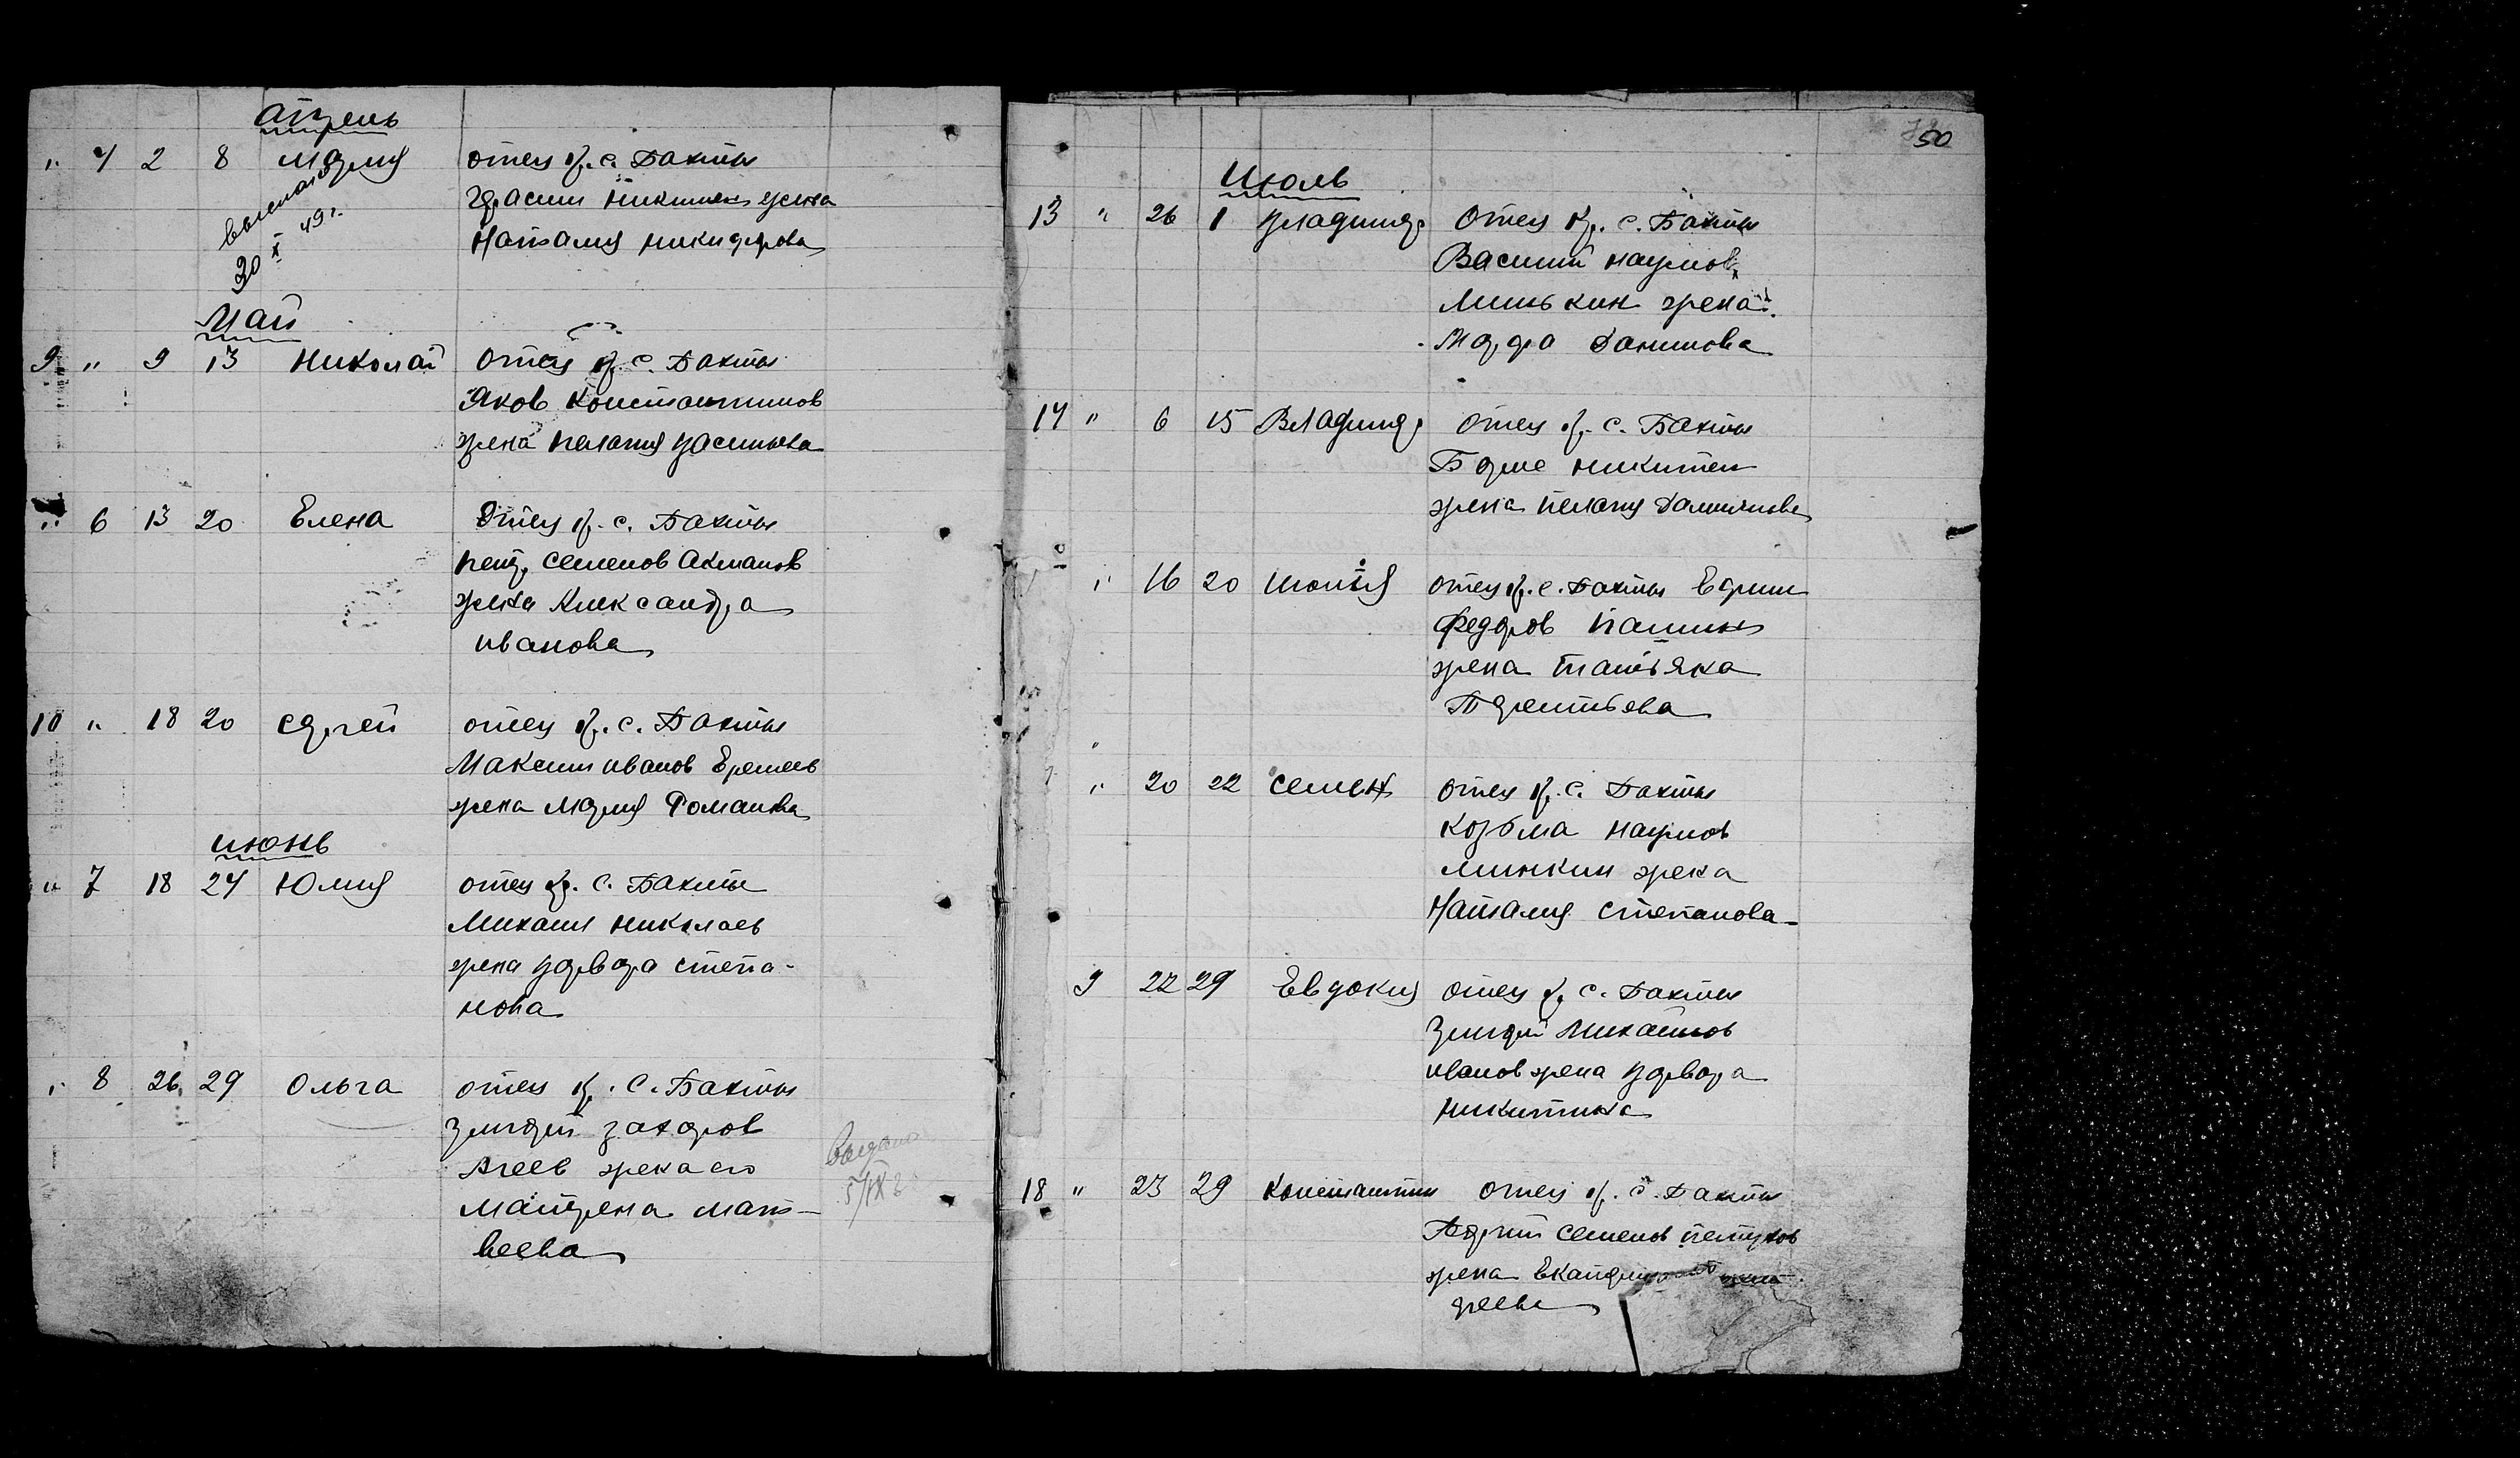 Апрель
" 4 2 8 Мария отец кр. с. Бахты
Герасим Никитин жена
Наталия Никифорова
выслано
30 X 49 г.
Май
9 " 9 13 Николай отец кр. с. Бахты
Яков Константинов
жена Пелагия Васильева
" 6 13 20 Елена Отец кр. с. Бахты
Петр Семенов Акманов
жена Александра
Иванова
10 " 18 20 Сергей отец кр. с. Бахты
Максим Иванов Еремеев
жена Мария Романова
Июнь
" 7 18 24 Юлия отец кр. с. Бахты
Михаил Николаев
жена Варвара Степа-
нова
" 8 26 29 Ольга отец кр. с. Бахты
Григорий Захаров
Агеев жена его
Матрена Мат-
веева
Выдано
5/IX
50
Июль
13 " 26 1 Владимир Отец кр. с. Бахты
Василий Наумов
Минькин жена
Марфа Данилова
14 " 6 15 Владимир Отец кр. с. Бахты
Борис Никитин
жена Пелагия Дамиянова
" 16 20 отец кр. с. Бахты Ефрим
Федоров Палкин
жена Татьяна
Терентьева
" 20 22 Семен отец кр. с. Бахты
Козьма Наумов
Минкин жена
Наталия Степанова
9 22 29 Евдокия отец кр. с. Бахты
Григорий Михайлов
Иванов жена Варвара
Никитина
18 " 23 29 Константин Отец кр. с. Бахты
Георгий Семенов Петухов
жена Екатерина